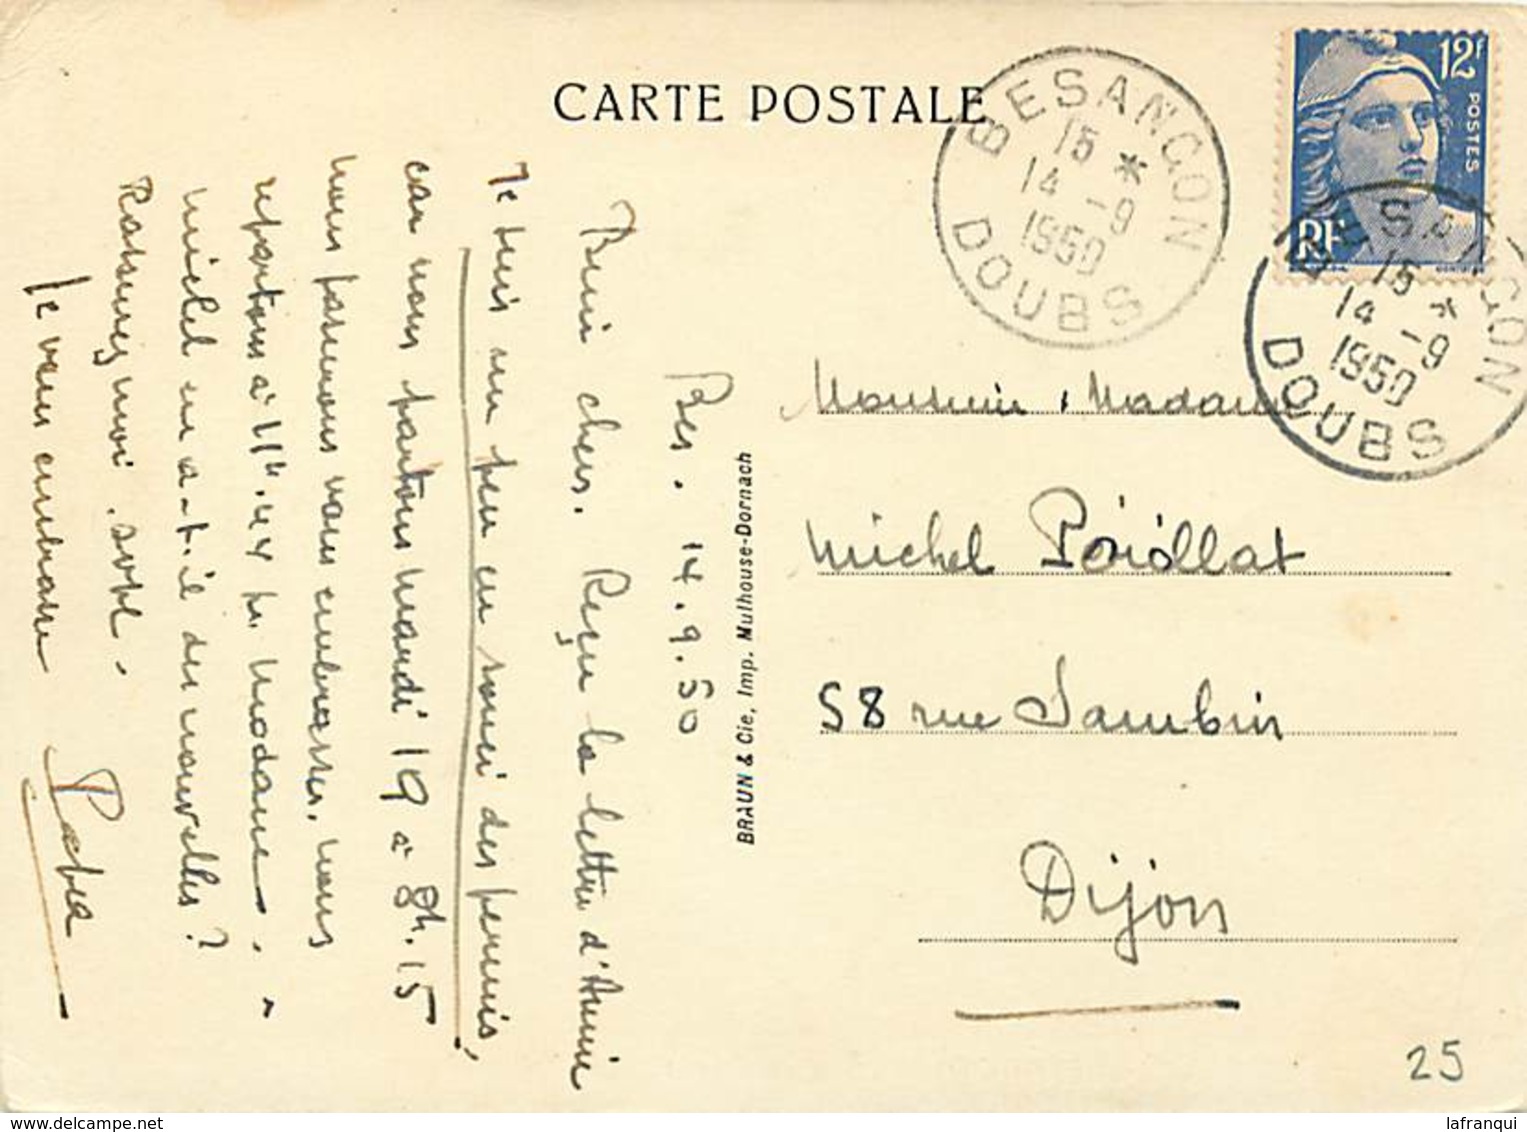 CARTE POSTALE
12f
POSTES
RF
BESANÇON
15 *
14 -9
1950
DOUBS
BESANÇON
15 *
14 -9
1950
DOUBS
Bes. 14.9.50
chers. Reçu la lettre d'Annie
Je suis un peu en souci des permis,
car nous partons mardi 19 à 8h.15
nous passerons vous embrasser, nous
repartons à 11h.44 pr Modane. "
Michel en a-t-il des nouvelles?
Rassurez moi. svpl.
Je vous embrasse
BRAUN & Cie, Imp. Mulhouse-Dornach
Monsieur, Madame
Michel
58 rue Jambin
Dijon
25
lafranqui